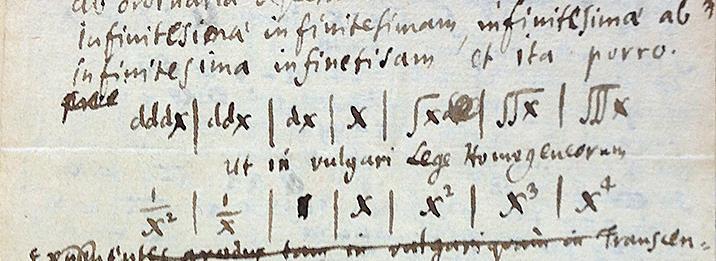 ab ordinaria
infinitesima infinitesimam, infinitesima ab
infinitesima infinetisam et ita porro.
dddx | ddx | dx | x | ∫x | ∫∫x | ∫∫∫x
ut in vulgari Lege Homogeneorum
1/x² | 1/x | 1 | x | x² | x³ | x⁴
Exponentes gradus tam in vulgari quam in Transcen=